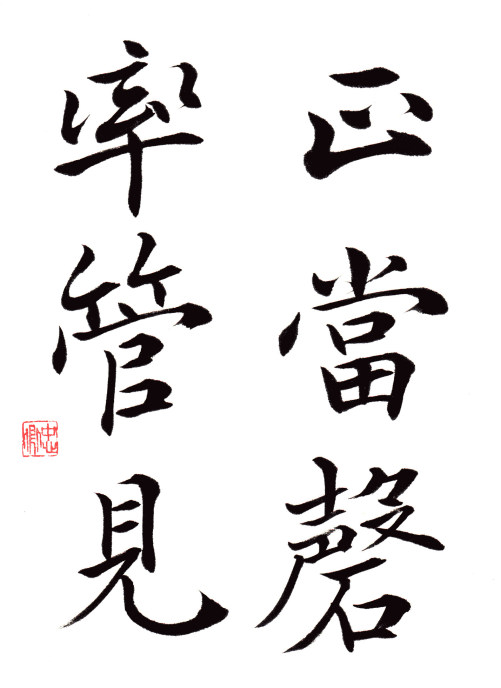 正當磬
率管見